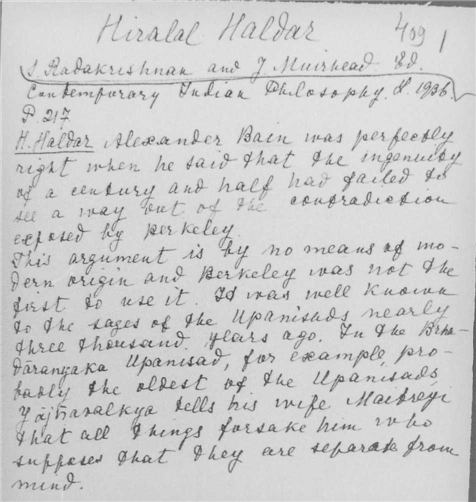 Hiralal Haldar 409 1
S Radakrishnan and J Muirhead Ed.
Contemporary Indian Philosophy. 1936
P. 217
H. Haldar Alexander Bain was perfectly
right when he said that the ingenuity
of a century and half had failed to
see a way out of the contradiction
exposed by Berkeley.
This argument is by no means of mo-
dern origin and Berkeley was not the
first to use it. It was well known
to the sages of the Upanisads nearly
three thousand years ago. In the Brha-
daranyaka Upanisad, for example, pro-
badly the oldest of the Upanisads,
Yajnavalkya tells his wife Maitreyi
that all things forsake him who
supposes that they are separate from
mind.